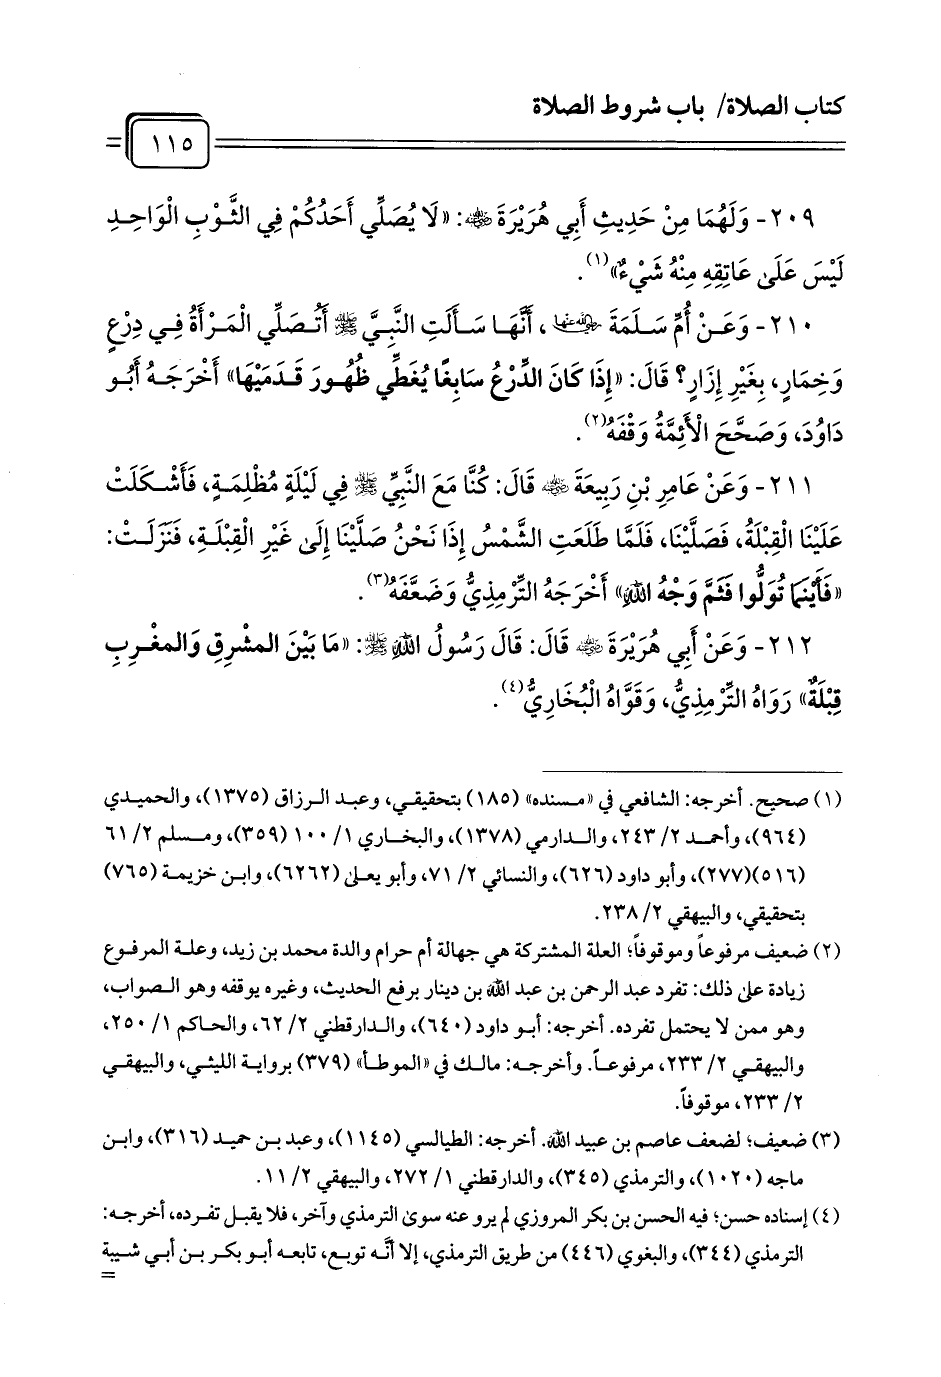 كتاب الصلاة/ باب شروط الصلاة
١١٥
٢٠٩- وَلَهُمَا مِنْ حَدِيثِ أَبِي هُرَيْرَةَ ﵁: «لَا يُصَلِّي أَحَدُكُمْ فِي الثَّوْبِ الْوَاحِدِ
لَيْسَ عَلَىٰ عَاتِقِهِ مِنْهُ شَيْءٌ»(١).
٢١٠- وَعَنْ أُمِّ سَلَمَةَ ﵂، أَنَّهَا سَأَلَتِ النَّبِيَّ ﷺ أَتُصَلِّي الْمَرْأَةُ فِي دِرْعٍ
وَخِمَارٍ، بِغَيْرِ إِزَارٍ؟ قَالَ: «إِذَا كَانَ الدِّرْعُ سَابِغًا يُغَطِّي ظُهُورَ قَدَمَيْهَا» أَخْرَجَهُ أَبُو
دَاوُدَ، وَصَحَّحَ الْأَئِمَّةُ وَقْفَهُ(٢).
٢١١- وَعَنْ عَامِرِ بْنِ رَبِيعَةَ ﵁ قَالَ: كُنَّا مَعَ النَّبِيِّ ﷺ فِي لَيْلَةٍ مُظْلِمَةٍ، فَأَشْكَلَتْ
عَلَيْنَا الْقِبْلَةُ، فَصَلَّيْنَا، فَلَمَّا طَلَعَتِ الشَّمْسُ إِذَا نَحْنُ صَلَّيْنَا إِلَىٰ غَيْرِ الْقِبْلَةِ، فَنَزَلَتْ:
«فَأَيْنَمَا تُوَلُّوا فَثَمَّ وَجْهُ اللهِ» أَخْرَجَهُ التِّرْمِذِيُّ وَضَعَّفَهُ(٣).
٢١٢- وَعَنْ أَبِي هُرَيْرَةَ ﵁ قَالَ: قَالَ رَسُولُ اللهِ ﷺ: «مَا بَيْنَ المشْرِقِ وَالمغْرِبِ
قِبْلَةٌ» رَوَاهُ التِّرْمِذِيُّ، وَقَوَّاهُ الْبُخَارِيُّ(٤).
(١) صحيح. أخرجه: الشافعي في «مسنده» (١٨٥) بتحقيقي، وعبد الرزاق (١٣٧٥)، والحميدي
(٩٦٤)، وأحمد ٢/ ٢٤٣، والدارمي (١٣٧٨)، والبخاري ١/ ١٠٠ (٣٥٩)، ومسلم ٢/ ٦١
(٥١٦)(٢٧٧)، وأبو داود (٦٢٦)، والنسائي ٢/ ٧١، وأبو يعلىٰ (٦٢٦٢)، وابن خزيمة (٧٦٥)
بتحقيقي، والبيهقي ٢/ ٢٣٨.
(٢) ضعيف مرفوعاً وموقوفاً؛ العلة المشتركة هي جهالة أم حرام والدة محمد بن زيد، وعلة المرفوع
زيادة علىٰ ذلك: تفرد عبد الرحمن بن عبد الله بن دينار برفع الحديث، وغيره يوقفه وهو الصواب،
وهو ممن لا يحتمل تفرده. أخرجه: أبو داود (٦٤٠)، والدارقطني ٢/ ٦٢، والحاكم ١/ ٢٥٠،
والبيهقي ٢/ ٢٣٣، مرفوعاً. وأخرجه: مالك في «الموطأ» (٣٧٩) برواية الليثي، والبيهقي
٢/ ٢٣٣، موقوفاً.
(٣) ضعيف؛ لضعف عاصم بن عبيد الله. أخرجه: الطيالسي (١١٤٥)، وعبد بن حميد (٣١٦)، وابن
ماجه (١٠٢٠)، والترمذي (٣٤٥)، والدارقطني ١/ ٢٧٢، والبيهقي ٢/ ١١.
(٤) إسناده حسن؛ فيه الحسن بن بكر المروزي لم يرو عنه سوىٰ الترمذي وآخر، فلا يقبل تفرده، أخرجه:
الترمذي (٣٤٤)، والبغوي (٤٤٦) من طريق الترمذي، إلا أنَّه توبع، تابعه أبو بكر بن أبي شيبة
=